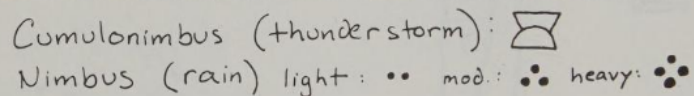 Cumulonimbus (thunderstorm):
Nimbus (rain) light: mod.: heavy: